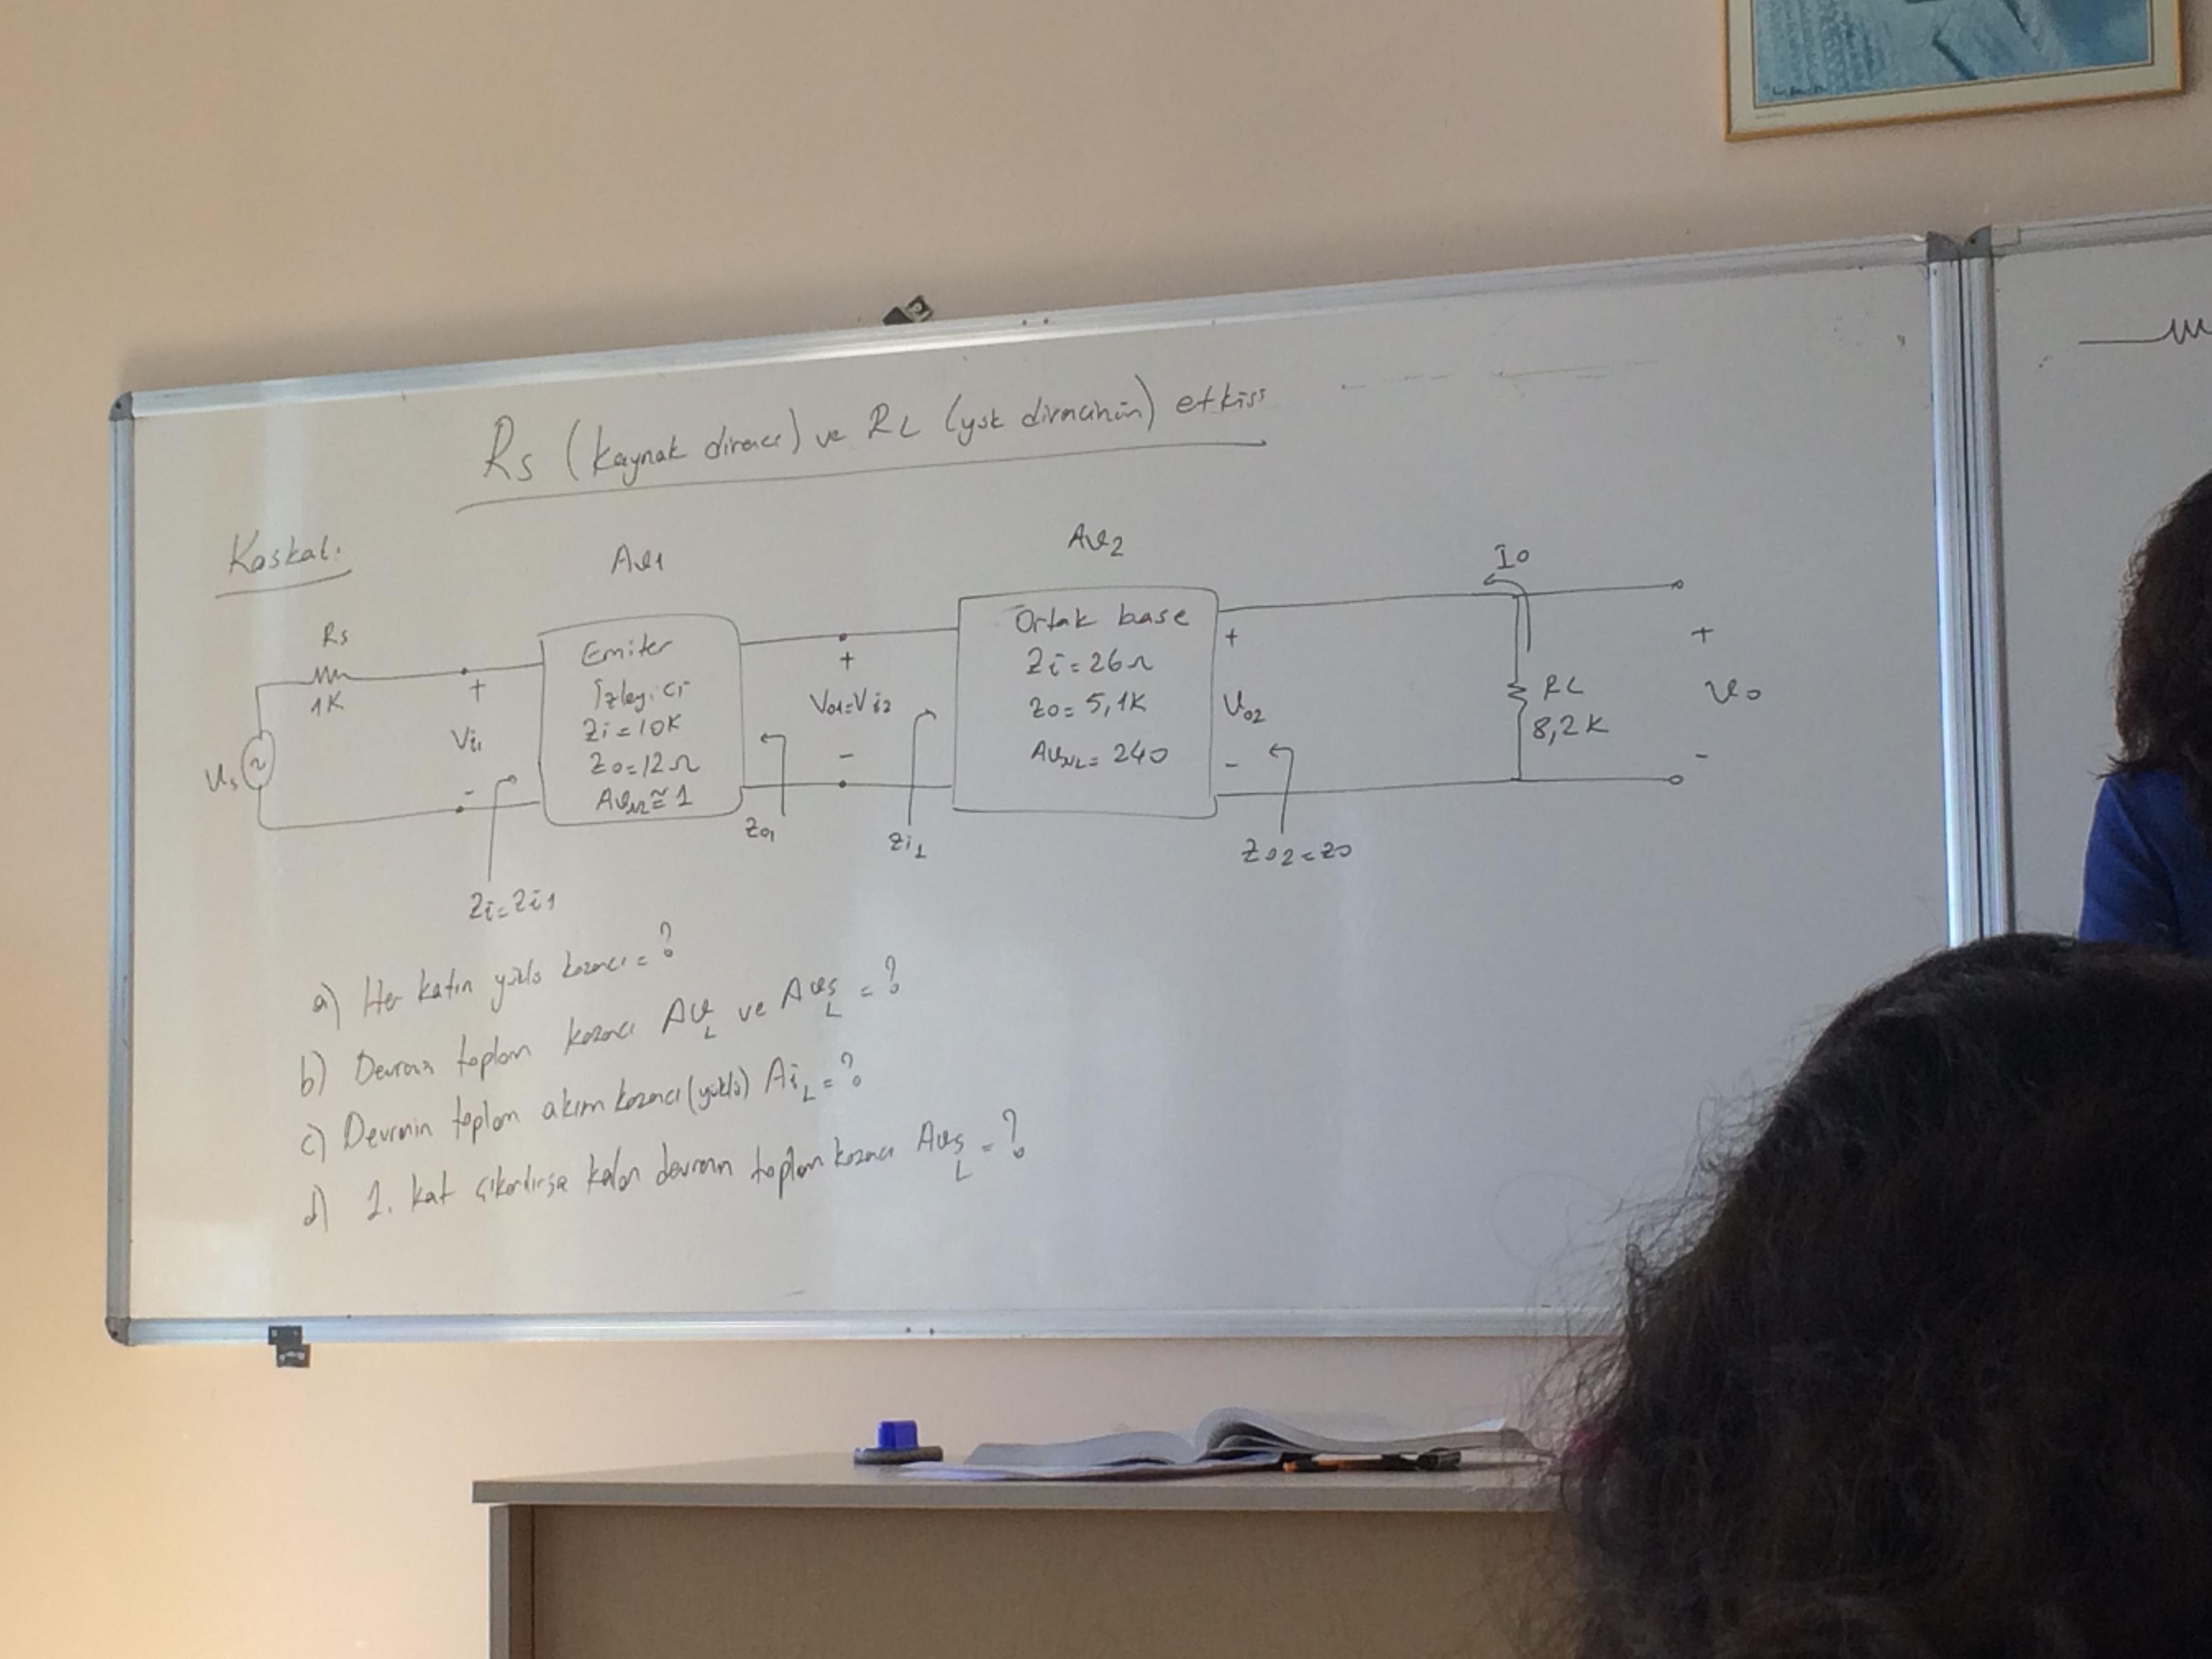 Rs (kaynak direnci) ve RL (yük direncinin) etkisi
Kaskat:
Av1
Av2
Io
Rs
1K
Vs
+
Vi1
-
Emiter
İzleyici
Zi = 10K
Zo = 12Ω
AvNL ≅ 1
+
Vo1 = Vi2
-
Ortak base
Zi = 26Ω
Zo = 5,1K
AvNL = 240
+
Vo2
-
RL
8,2K
+
Vo
-
Zi = Zi1
Zo1
Zi2
Zo2 = Zo
a) Her katın yüklü kazancı = ?
b) Devrenin toplam kazancı AvL ve AvsL = ?
c) Devrenin toplam akım kazancı (yüklü) AiL = ?
d) 1. kat çıkarılırsa kalan devrenin toplam kazancı AvsL = ?